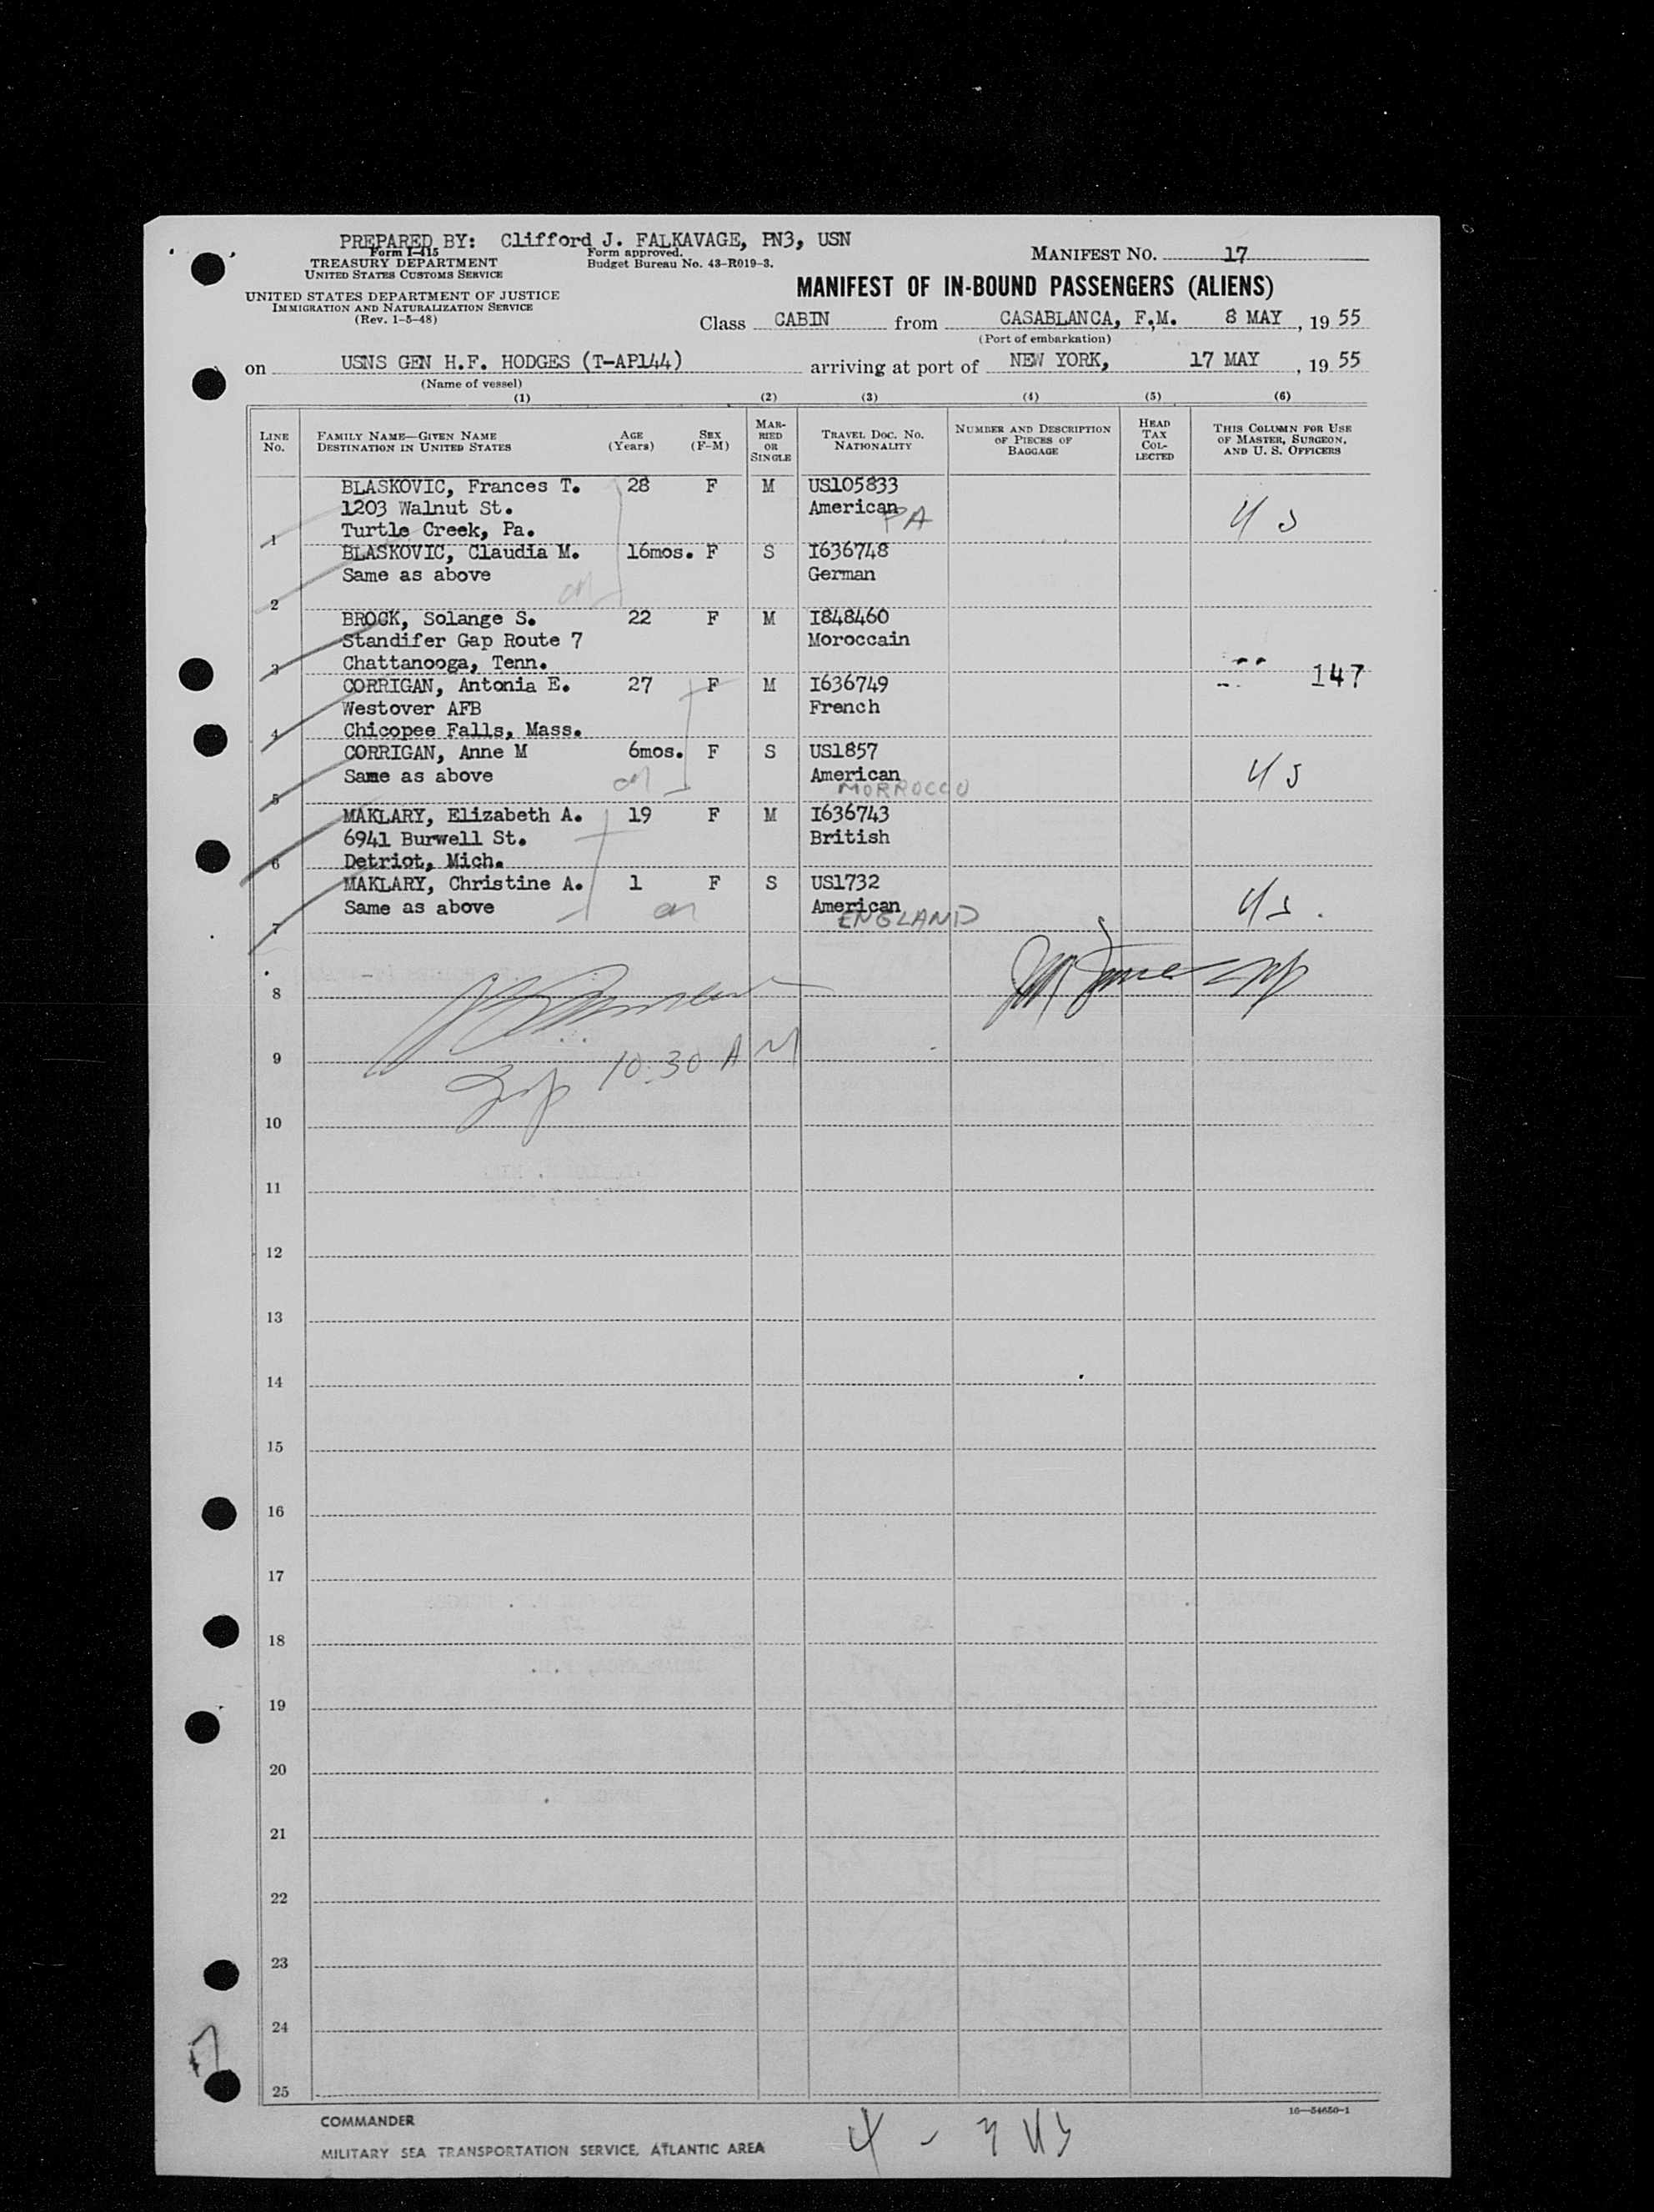 PREPARED BY: Clifford J. FALKAVAGE, PN3, USN
Form I-415
TREASURY DEPARTMENT
UNITED STATES CUSTOMS SERVICE
Form approved.
Budget Bureau No. 43-R019-3.
MANIFEST NO. 17
UNITED STATES DEPARTMENT OF JUSTICE
IMMIGRATION AND NATURALIZATION SERVICE
(Rev. 1-5-48)
MANIFEST OF IN-BOUND PASSENGERS (ALIENS)
Class CABIN from CASABLANCA, F.M. 8 MAY, 1955
(Port of embarkation)
on USNS GEN H.F. HODGES (T-AP144) arriving at port of NEW YORK, 17 MAY, 1955
(Name of vessel)
(1) (2) (3) (4) (5) (6)
LINE NO. FAMILY NAME—GIVEN NAME DESTINATION IN UNITED STATES AGE (Years) SEX (F-M) MARRIED OR SINGLE TRAVEL DOC. NO. NATIONALITY NUMBER AND DESCRIPTION OF PIECES OF BAGGAGE HEAD TAX COLLECTED THIS COLUMN FOR USE OF MASTER, SURGEON, AND U. S. OFFICERS
BLASKOVIC, Frances T. 28 F M US105833
1203 Walnut St. American PA US
1 Turtle Creek, Pa.
BLASKOVIC, Claudia M. 16mos. F S I636748
Same as above German
2
BROCK, Solange S. 22 F M I848460
Standifer Gap Route 7 Moroccain
3 Chattanooga, Tenn.
147
CORRIGAN, Antonia E. 27 F M I636749
Westover AFB French
4 Chicopee Falls, Mass.
CORRIGAN, Anne M 6mos. F S US1857
Same as above American US
5 MORROCCO
MAKLARY, Elizabeth A. 19 F M I636743
6941 Burwell St. British
6 Detriot, Mich.
MAKLARY, Christine A. 1 F S US1732
Same as above American US.
7 ENGLAND
8
9 10:30 AM
10
11
12
13
14
15
16
17
18
19
20
21
22
23
24
17
25
16—54650-1
COMMANDER
MILITARY SEA TRANSPORTATION SERVICE, ATLANTIC AREA
4 - 3 US